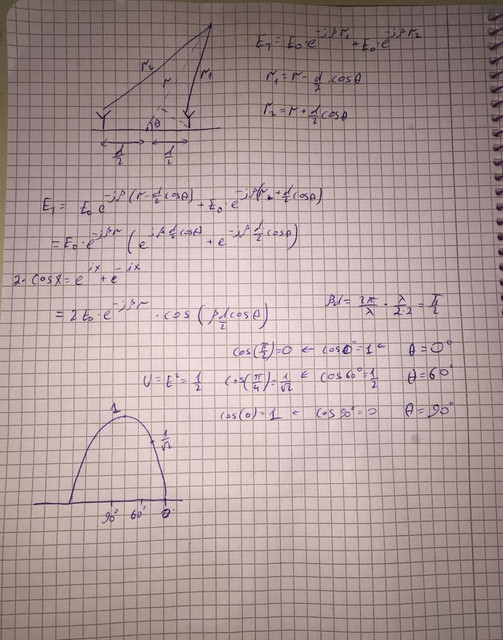 r₂ r r₁
θ
d/2 d/2
E_T = E₀·e^(-jβr₁) + E₀·e^(-jβr₂)
r₁ = r - d/2 cosθ
r₂ = r + d/2 cosθ
E_T = E₀ e^(-jβ(r - d/2 cosθ)) + E₀·e^(-jβ(r₂ + d/2 cosθ))
= E₀·e^(-jβr) (e^(jβ d/2 cosθ) + e^(-jβ d/2 cosθ))
2·cosx = e^(ix) + e^(-ix)
= 2E₀·e^(-jβr) · cos(β d/2 cosθ)
= 2π/λ · λ/2·2 = π/2
cos(π/2) = 0 ← cos0° = 1 ← θ = 0°
U = E² = 1/2 cos(π/4) = 1/√2 ← cos60° = 1/2 θ = 60°
cos(0) = 1 ← cos90° = 0 θ = 90°
1
1/√2
90° 60° 0°